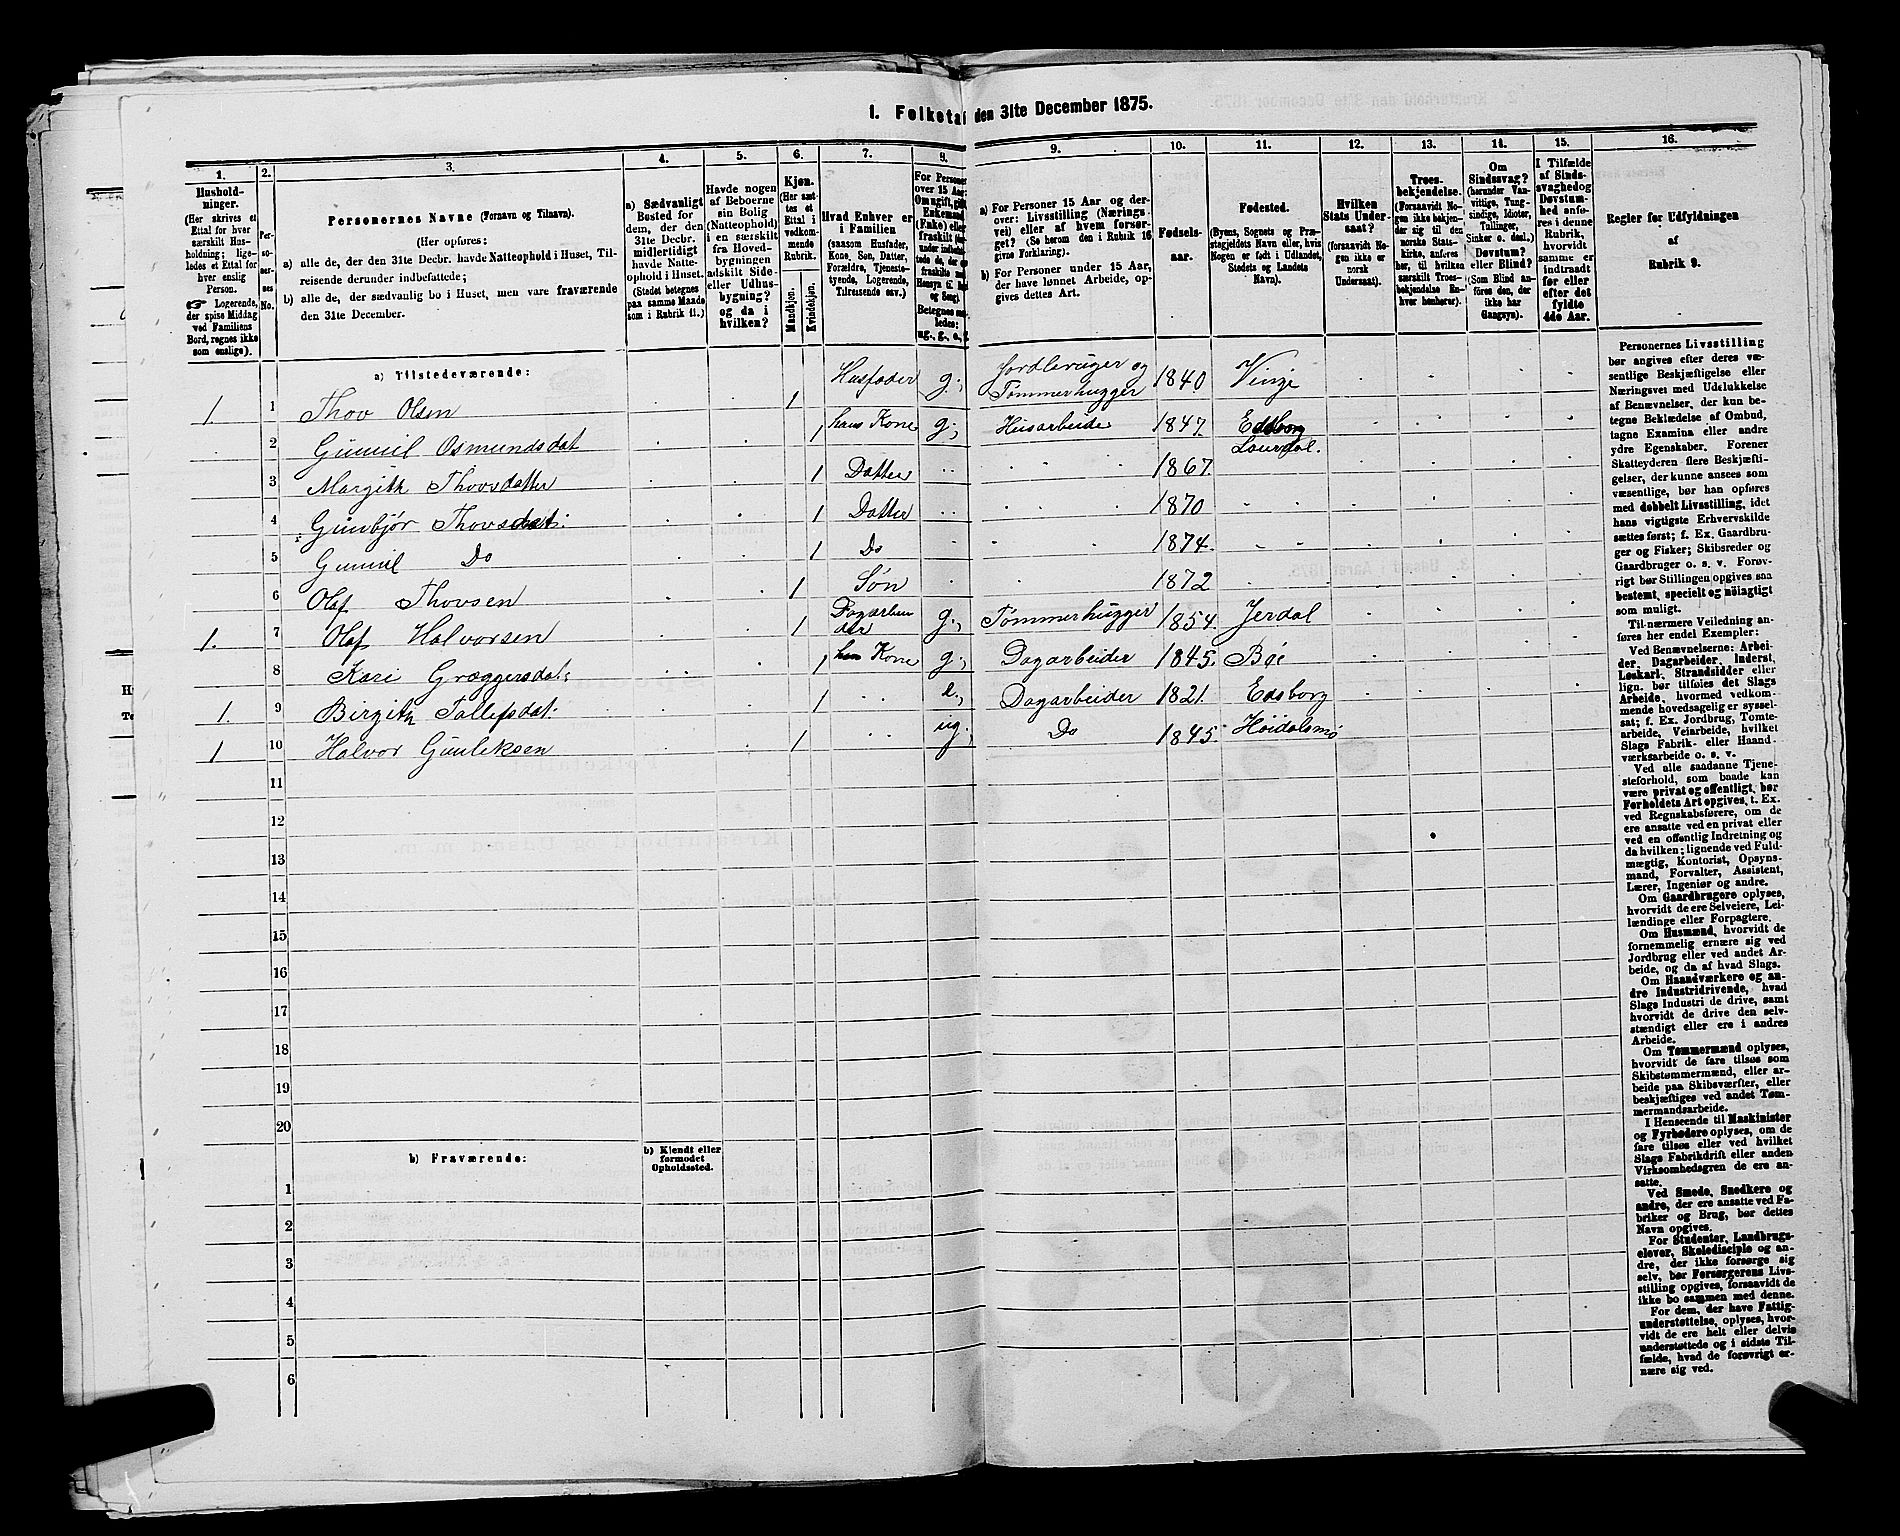 I. Folketal den 31te December 1875.
1.
2.
3.
4.
5.
6.
7.
9.
9.
10.
11.
12.
13.
14.
15.
16.
Hushold-
ninger.
(Her skrives et
Ettal for hver
særskilt Hus-
holdning; lige-
ledes et Ettal for
hver enslig
Person.
☞ Logerende,
der spise Middag
ved Familiens
Bord, regnes ikke
som enslige).
Per-
so-
ner-
nes
No.
Personernes Navne (Fornavn og Tilnavn).
(Her opføres:
a) alle de, der den 31te Decbr. havde Natteophold i Huset, Til-
reisende derunder indbefattede;
b) alle de, der sædvanlig bo i Huset, men vare fraværende
den 31te December.
a) Sædvanligt
Bosted for
dem, der den
31te Decbr.
midlertidigt
havde Natte-
ophold i Huset.
(Stedet betegnes
paa samme Maade
som i Rubrik 11.)
Havde nogen
af Beboerne
sin Bolig
(Natteophold)
i en særskilt
fra Hoved-
bygningen
adskilt Side-
eller Udhus-
bygning?
og da i
hvilken?
Kjøn.
(Her sæt-
tes et
Ettal i
vedkom-
mende
Rubrik.
Mandkjøn.
Kvindekjøn.
Hvad Enhver er
i Familien
(saasom Husfader,
Kone, Søn, Datter,
Forældre, Tjeneste-
tyende, Logerende,
Tilreisende osv.)
For Personer
over 15 Aar:
Omgift, gift
Enkemand
(Enke) eller
fraskilt
Betegnes saa-
ledes:
ug., g., e., f.
a) For Personer 15 Aar og der-
over: Livsstilling (Nærings-
vei) eller af hvem forsør-
get? (Se herom den i Rubrik 16
givne Forklaring).
b) For Personer under 15 Aar,
der have lønnet Arbeide, op-
gives dettes Art.
Fødsels-
aar.
Fødested.
(Byens, Sognets og Præ-
stegjeldets Navn eller, hvis
Nogen er født i Udlandet,
Stedets og Landets
Navn).
Hvilken
Stats Under-
saat?
(forsaavidt No-
gen ikke er
norsk
Undersaat).
Troes-
bekjendelse.
(Forsaavidt No-
gen ikke bekjen-
der sig til den
norske Stats-
kirke, anføres
her, til hvilken
særskilt Troes-
bekjendelse En-
hver henhører).
Om
Sindssvag?
(herunder Van-
vittige, Tung-
sindige, Idioter,
Tallinger,
Sinker o. desl.)
Døvstum?
eller Blind?
(Som Blind an-
føres den, der
ikke har
Gangsyn).
I Tilfælde
af Sinds-
svaghed og
Døvstum-
hed anfø-
res i denne
Rubrik,
hvorvidt
samme er
indtraadt
før eller
efter det
fyldte
4de Aar.
Regler for Udfyldningen
af
Rubrik 9.
a) Tilstedeværende:
1. 1 Thov Olsen 1 Husfader g; Jordbruger og Tømmerhugger 1840 Vinje
2 Gunnil Osmundsdat 1 hans Kone g; Husarbeide 1847. Edsborg Laurdal.
3 Margith Thovsdatter 1 Datter 1867.
4 Gunbjør Thovsdat: 1 Datter 1870
5 Gunnil Do 1 Do 1874.
6 Olaf Thovsen 1 Søn 1872
1. 7 Olaf Halvorsen 1 g; Tømmerhugger 1854. Jerdal
8 Kari Græggersdat: 1 Kone g; Dagarbeider 1845. Bøe
1. 9 Birgith Tallefsdat. 1 e; Dagarbeider 1821. Edsborg
1 10 Halvor Gunleksen 1 ug; Do 1845. Høidalsmø
11
12
13
14
15
16
17
18
19
20
b) Fraværende:
b) Kjendt eller
formodet
Opholdssted.
1
2
3
4
5
6
Personernes Livsstilling
bør angives efter deres væ-
sentlige Beskjæftigelse eller
Næringsvei med Udelukkelse
af Benævnelser, der kun be-
tegne Beklædelse af Ombud,
tagne Examina eller andre
ydre Egenskaber. Forener
Skatteyderen flere Beskjæfti-
gelser, der kunne ansees som
væsentlige, bør han opføres
med dobbelt Livsstilling, idet
hans vigtigste Erhvervskilde
sættes først; f. Ex. Gaardbru-
ger og Fisker; Skibsreder og
Gaardbruger o. s. v. Forøv-
rigt bør Stillingen opgives saa
bestemt, specielt og nøiagtigt
som muligt.
Til nærmere Veiledning an-
føres her endel Exempler:
Ved Benævnelserne: Arbei-
der, Dagarbeider, Inderst,
Løskarl, Strandsidder eller
lign. bør tilføies det Slags
Arbeide, hvormed vedkom-
mende hovedsagelig er syssel-
sat; f. Ex. Jordbrug, Tomte-
arbeide, Veiarbeide, hvilket
Slags Fabrik- eller Haand-
værksarbeide o. s. v.
Ved alle saadanne Tjene-
steforhold, som baade kan
være privat og offentligt, bør
Forholdets Art opgives, t. Ex.
ved Regnskabsførere, om de
ere ansatte ved en privat eller
ved en offentlig Indretning og
da hvilken; lignende ved Fuld-
mægtig, Kontorist, Opsyns-
mand, Forvalter, Assistent,
Lærer, Ingeniør og andre.
Om Gaardbrugere oplyses,
hvorvidt de ere Selveiere, Lei-
lændinge eller Forpagtere.
Om Husmænd, hvorvidt de
fornemmelig ernære sig ved
Jordbrug eller ved andet Ar-
beide, og da af hvad Slags.
Om Haandværkere og an-
dre Industridrivende, hvad
Slags Industri de drive, samt
hvorvidt de drive den selv-
stændigt eller ere i andres
Arbeide.
Om Tømmermænd oplyses,
hvorvidt de fare tilsøs som
Skibstømmermænd, eller ar-
beide paa Skibsværfter, eller
beskjæftiges ved andet Tøm-
mermandsarbeide.
I Henseende til Maskinister
og Fyrbødere oplyses, om de
fare tilsøs eller ved hvilket
Slags Fabrikdrift eller anden
Virksomhedsgren de ere an-
satte.
Ved Smede, Snedkere og
andre, der ere ansatte ved Fa-
briker og Brug, bør dettes
Navn opgives.
For Studenter, Landbrugs-
elever, Skoledisciple og an-
dre, der ikke forsørge sig
selv, bør Forsørgerens Livs-
stilling opgives, forsaavidt de
ikke bo sammen med denne.
For dem, der have Fattig-
understøttelse, oplyses, hvor-
vidt de ere helt eller delvis
understøttede og i sidste Til-
fælde, hvad de forøvrigt er-
nære sig ved.